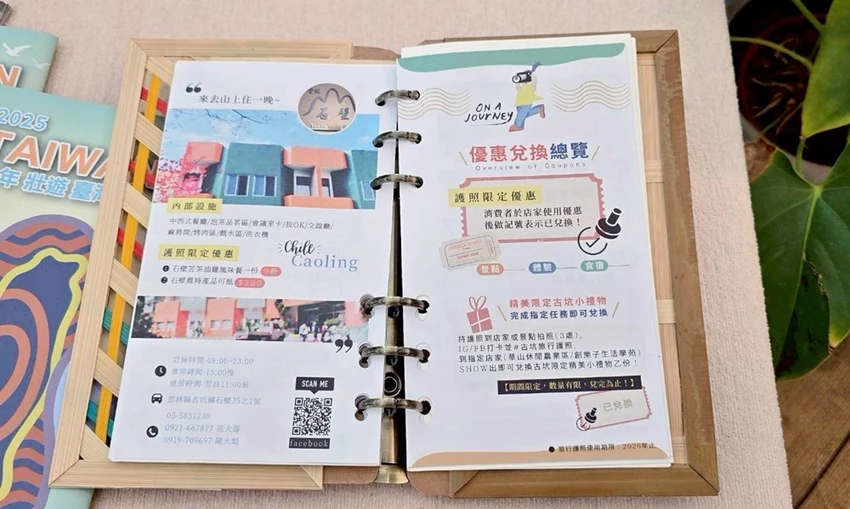 N
2025
TAIWA
年 壯遊臺灣
來去山上住一晚~
石壁
內部設施
中西式餐廳/泡茶品茗區/會議室卡/拉OK/交誼廳/
麻將間/烤肉區/戲水區/洗衣機
護照限定優惠
Chill
Caoling
❶ 石壁苦茶油雞風味餐一份
❷ 石壁農特產品可抵
訂房時間-08:00-23:00
進房時間-15:00後
退房時間-翌日11:00前
雲林縣古坑鄉石壁75之1號
05-5831238
0921-667877 高大哥
0919-709697 陳大姐
SCAN ME
facebook
ON A
JOURNEY
優惠兌換總覽
Overview of Coupons
護照限定優惠
消費者於店家使用優惠
後做記號表示已兌換!
景點
體驗
食宿
精美限定古坑小禮物
完成指定任務即可兌換
持護照到店家或景點拍照(3處),
IG/FB打卡並#古坑旅行護照,
到指定店家(華山休閒農業區/創樂子生活學苑)
SHOW出即可兌換古坑限定精美小禮物乙份!
【期間限定,數量有限,兌完為止!】
已兌換
● 旅行護照使用期限:2026年止